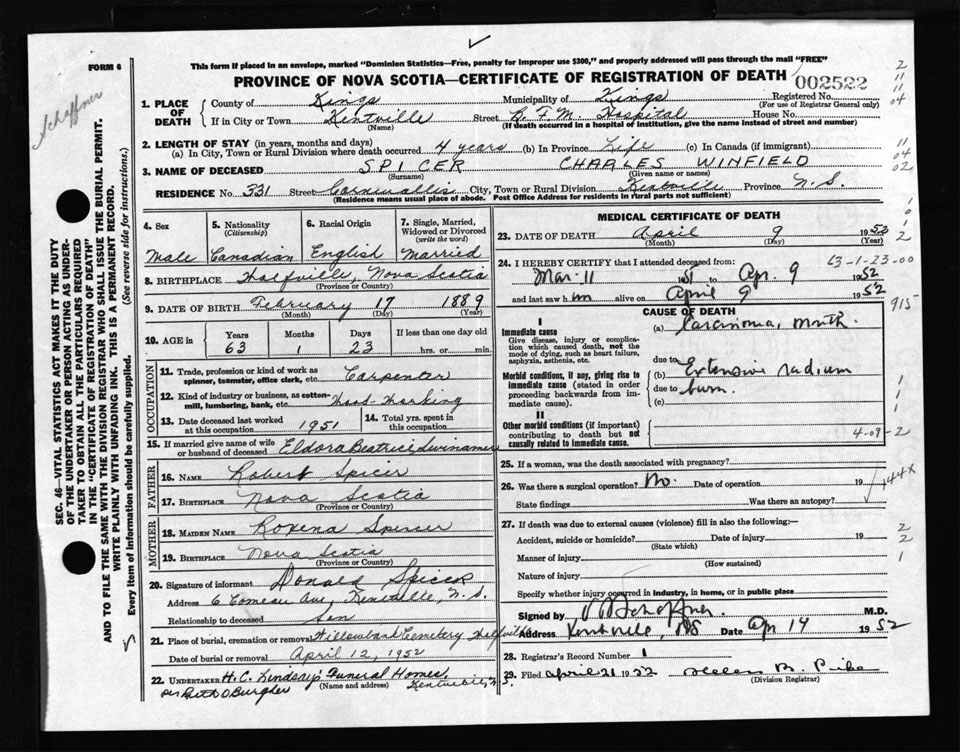 This form if placed in an envelope, marked "Dominion Statistics—Free, penalty for improper use $300," and properly addressed will pass through the mail "FREE"
FORM 6
PROVINCE OF NOVA SCOTIA—CERTIFICATE OF REGISTRATION OF DEATH
002522
Schaffner
SEC. 46—VITAL STATISTICS ACT MAKES IT THE DUTY
OF THE UNDERTAKER OR PERSON ACTING AS UNDER-
TAKER TO OBTAIN ALL THE PARTICULARS REQUIRED
IN THE "CERTIFICATE OF REGISTRATION OF DEATH"
AND TO FILE THE SAME WITH THE DIVISION REGISTRAR WHO SHALL ISSUE THE BURIAL PERMIT.
WRITE PLAINLY WITH UNFADING INK. THIS IS A PERMANENT RECORD.
Every item of information should be carefully supplied. (See reverse side for instructions.)
1. PLACE OF DEATH
County of Kings Municipality of Kings Registered No.
(For use of Registrar General only)
If in City or Town Kentville Street B. F. M. Hospital House No.
(Name) (If death occurred in a hospital or institution, give the name instead of street and number)
2. LENGTH OF STAY (in years, months and days)
(a) In City, Town or Rural Division where death occurred 4 years (b) In Province Life (c) In Canada (if immigrant)
3. NAME OF DECEASED SPICER CHARLES WINFIELD
(Surname) (Given name or names)
RESIDENCE No. 331 Street Cornwallis City, Town or Rural Division Kentville Province N.S.
(Residence means usual place of abode. Post Office Address for residents in rural parts not sufficient)
4. Sex 5. Nationality (Citizenship) 6. Racial Origin 7. Single, Married, Widowed or Divorced (write the word)
Male Canadian English Married
8. BIRTHPLACE Wolfville, Nova Scotia
(Province or Country)
9. DATE OF BIRTH February 17 1889
(Month) (Day) (Year)
10. AGE in Years Months Days If less than one day old
63 1 23 hrs. or min.
OCCUPATION
11. Trade, profession or kind of work as spinner, teamster, office clerk, etc. Carpenter
12. Kind of industry or business, as cotton-mill, lumbering, bank, etc. Wood Working
13. Date deceased last worked at this occupation 1951 14. Total yrs. spent in this occupation
15. If married give name of wife or husband of deceased Eldora Beatrice
FATHER
16. NAME Robert Spicer
17. BIRTHPLACE Nova Scotia
(Province or Country)
MOTHER
18. MAIDEN NAME Roxena Spencer
19. BIRTHPLACE Nova Scotia
(Province or Country)
20. Signature of informant Donald Spicer
Address 6 Comeau Ave, Kentville, N.S.
Relationship to deceased Son
21. Place of burial, cremation or removal Willowbank Cemetery Wolfville
Date of burial or removal April 12, 1952
22. UNDERTAKER H. C. Lindsay's Funeral Homes, Kentville, N.S.
(Name and address)
per
MEDICAL CERTIFICATE OF DEATH
23. DATE OF DEATH April 9 1952
(Month) (Day) (Year)
24. I HEREBY CERTIFY that I attended deceased from: 63-1-23-00
Mar-11 1951 to Apr. 9 1952
and last saw him alive on April 9 1952
CAUSE OF DEATH
915
I
Immediate cause
Give disease, injury or complication which caused death, not the mode of dying, such as heart failure, asphyxia, asthenia, etc.
(a) Carcinoma, mouth.
due to
Morbid conditions, if any, giving rise to immediate cause (stated in order proceeding backwards from immediate cause).
(b) Extensive radium
due to burn.
(c)
II
Other morbid conditions (if important) contributing to death but not causally related to immediate cause.
4-09-2
25. If a woman, was the death associated with pregnancy?
26. Was there a surgical operation? No. Date of operation 19
144X
State findings Was there an autopsy?
27. If death was due to external causes (violence) fill in also the following:—
Accident, suicide or homicide? Date of injury 19
(State which)
Manner of injury
(How sustained)
Nature of injury
Specify whether injury occurred in industry, in home, or in public place
Signed by Schaffner M.D.
Address Kentville, NS Date Apr 14 1952
28. Registrar's Record Number 1
29. Filed April 21 1952 Helen B. Pike
(Division Registrar)
2
11
11
04
11
04
02
1
0
1
2
1
1
1
2
2
1